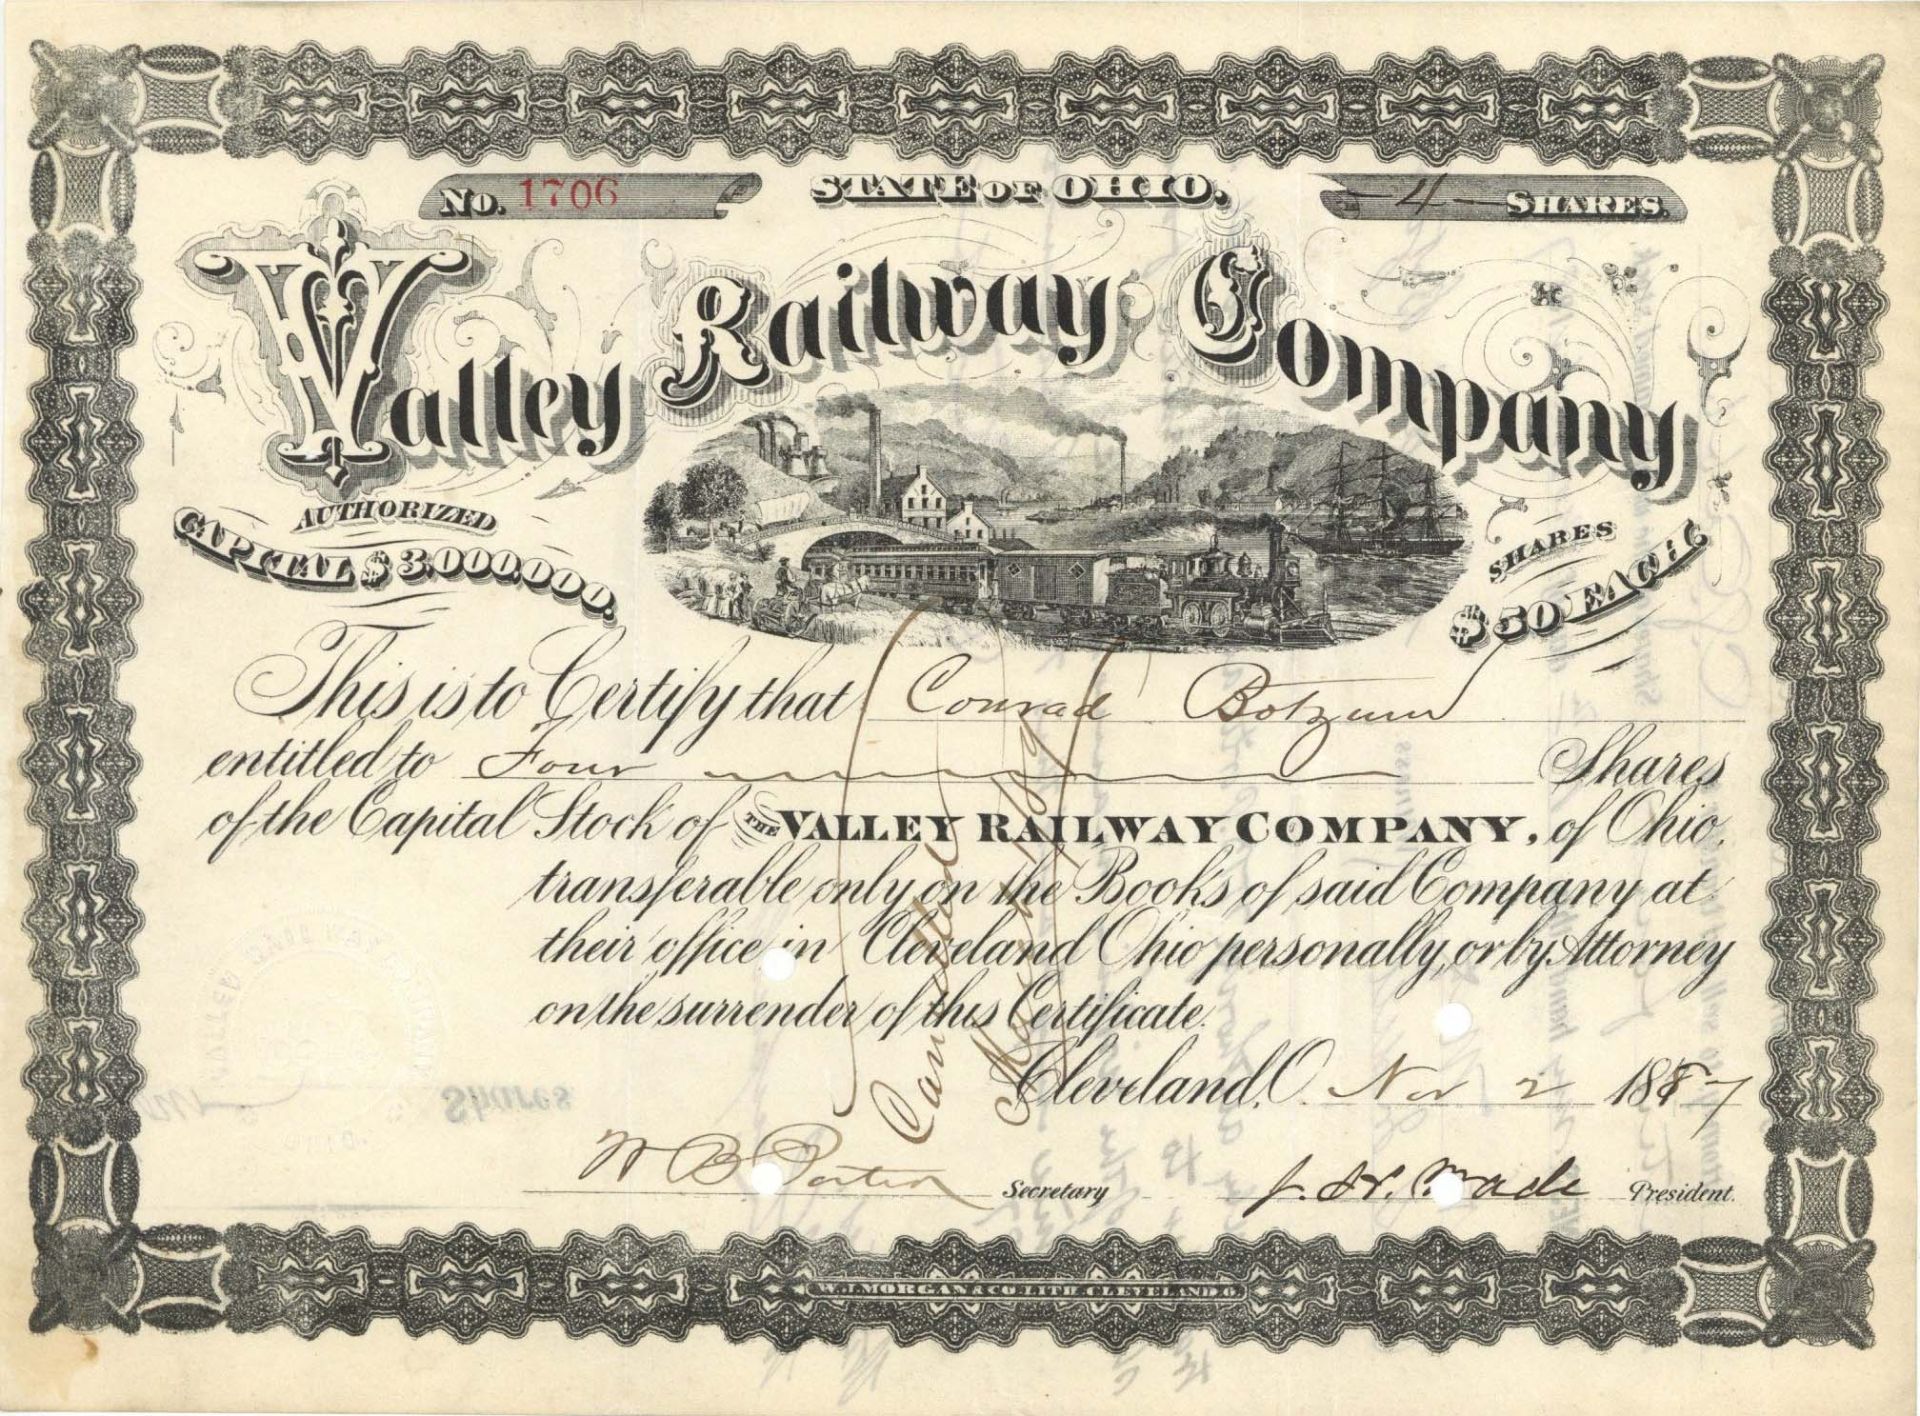 No. 1706
STATE OF OHIO,
- 4 - SHARES.
Valley Railway Company
AUTHORIZED
CAPITAL $3,000,000.
SHARES
$50 EACH.
This is to Certify that Conrad Botzum
entitled to Four Shares
of the Capital Stock of THE VALLEY RAILWAY COMPANY, of Ohio.
transferable only on the Books of said Company at
their office in Cleveland Ohio personally, or by Attorney
on the surrender of this Certificate.
Cleveland, O. Nov 2 1887
Cancelled
Secretary
J. H. Wade President.
W. J. MORGAN & CO. LITH. CLEVELAND, O.
Shares